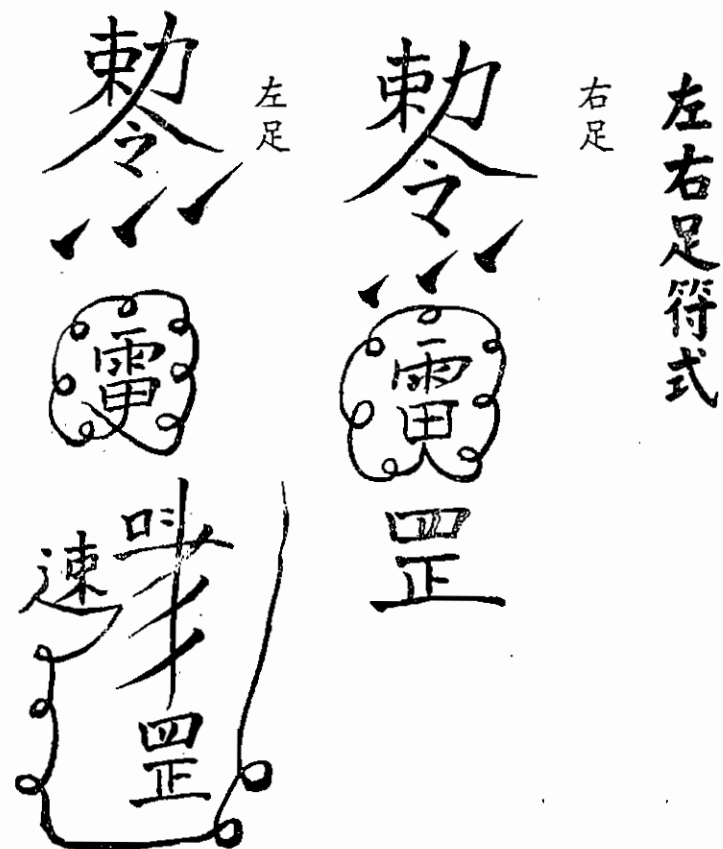 左右足符式
右足
勅令
雷
罡
左足
勅令
雷
速
罡